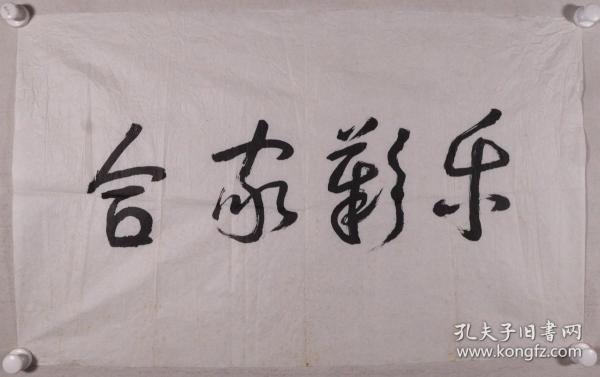 合家歡乐
孔夫子旧書网
www.kongfz.com